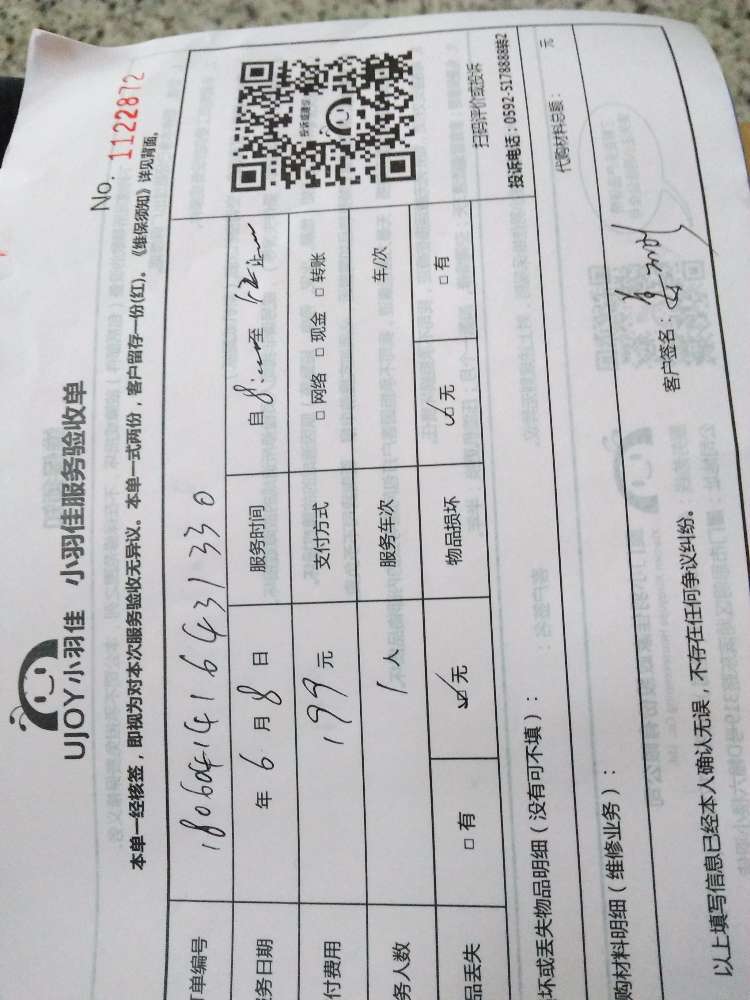 No. 1122872
UJOY小羽佳 小羽佳服务验收单
本单一经核签，即视为对本次服务验收无异议。本单一式两份，客户留存一份(红)。《维保须知》详见背面。
单编号
务日期 年 6 月 8 日 服务时间 自 8: 至 12 止
付费用 199 元 支付方式 □ 网络 □ 现金 □ 转账
务人数 1 人 服务车次 车/次
品丢失 □ 有 ☑ 无 物品损坏 ☑ 无 □ 有
投诉或建议
扫码评价或投诉
投诉电话：0592-5178888转2
坏或丢失物品明细（没有可不填）：
购材料明细（维修业务）： 代购材料总额： 元
以上填写信息已经本人确认无误，不存在任何争议纠纷。 客户签名：